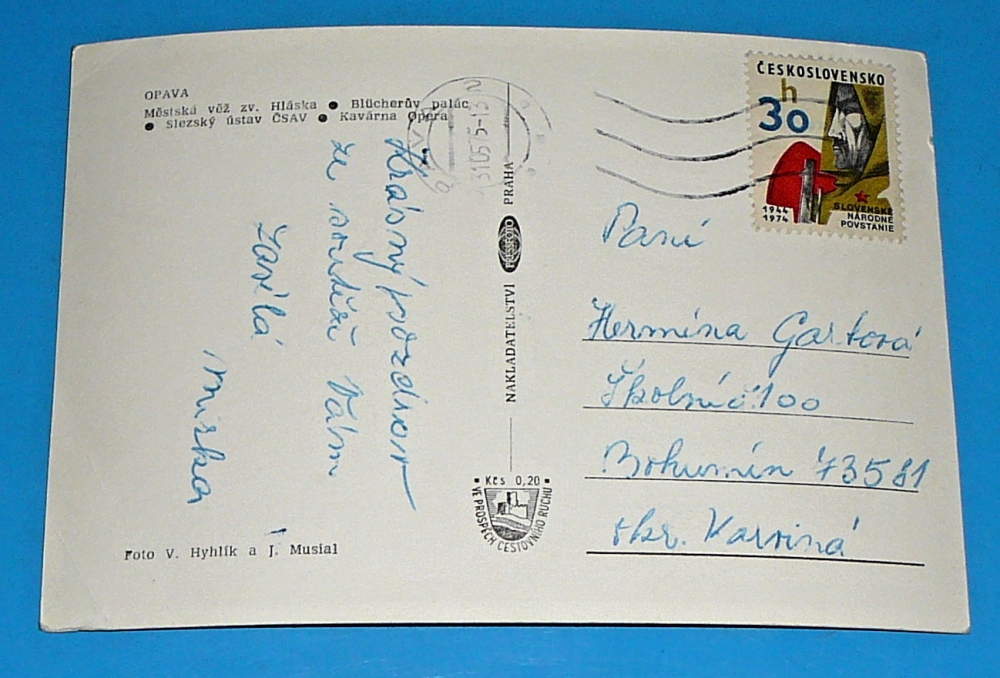 OPAVA
Městská věž zv. Hláska ● Blücherův palác
● Slezský ústav ČSAV ● Kavárna Opera
Krásný pozdrav
ze soutěže Vám
zasílá
Mirka
Foto V. Hyhlík a J. Musial
NAKLADATELSTVÍ PRESSFOTO PRAHA
Kčs 0,20
VE PROSPĚCH CESTOVNÍHO RUCHU
ČESKOSLOVENSKO
30 h
1944
1974
SLOVENSKÉ
NÁRODNÉ
POVSTANIE
Paní
Hermína Gartová
Školní č. 100
Bohumín 73581
okr. Karviná